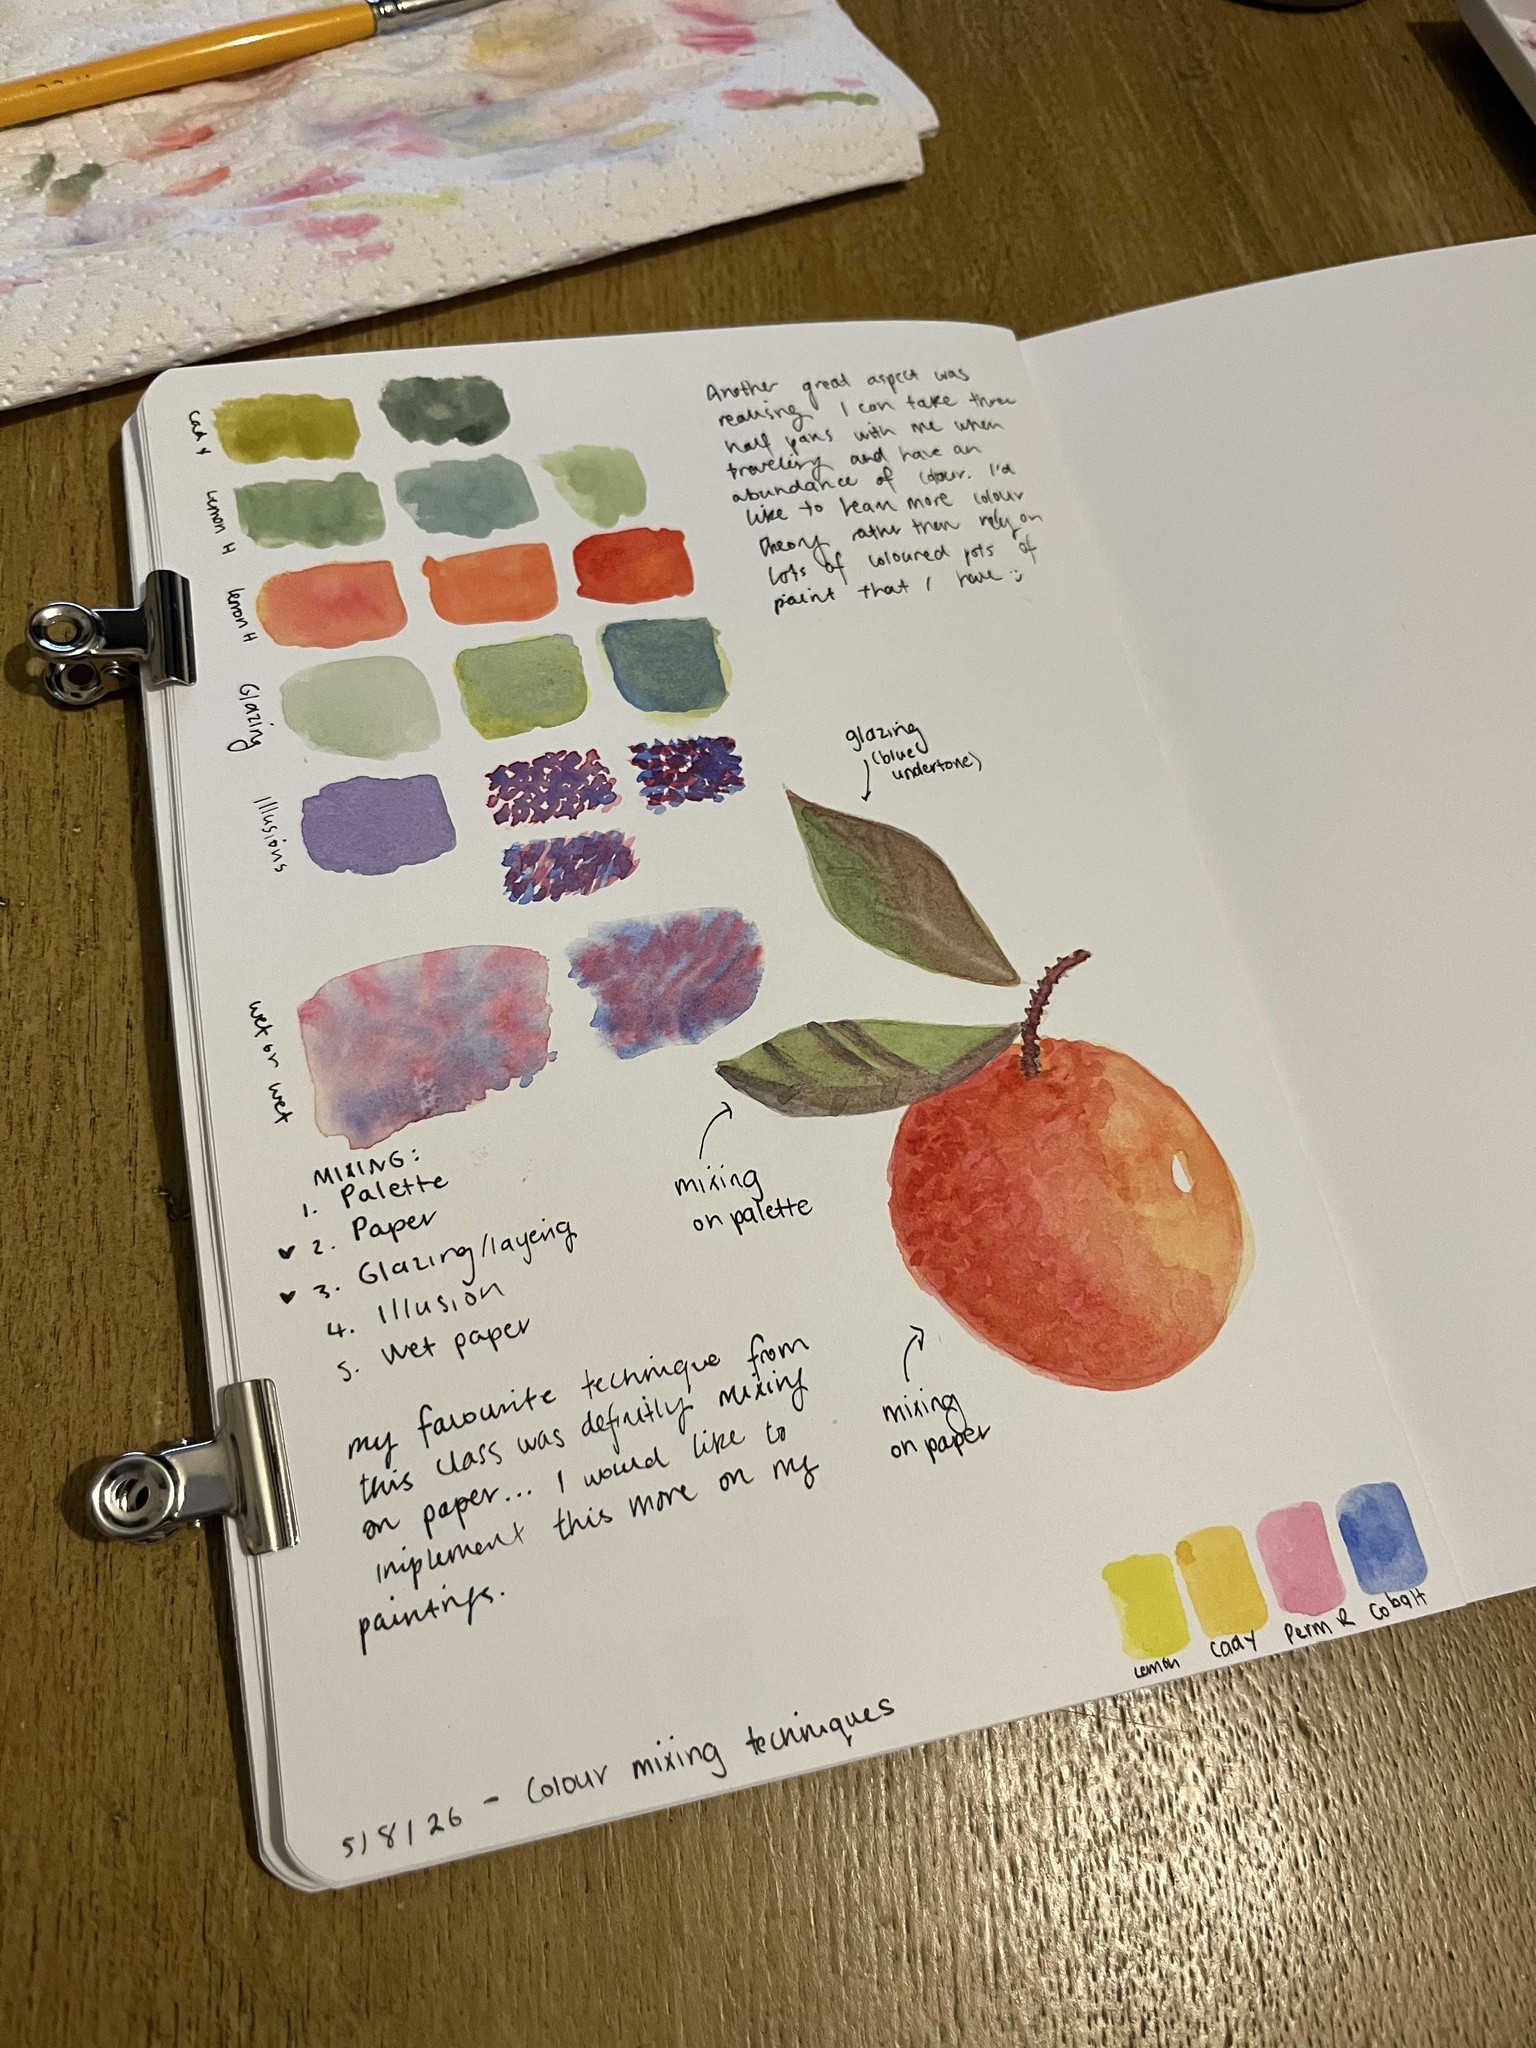 Cad Y
Lemon H
lemon H
Glazing
Illusions
wet or wet
Another great aspect was
realising I can take three
half pans with me when
traveling and have an
abundance of colour. I'd
like to learn more colour
theory rather then rely on
lots of coloured pots of
paint that I have :)
glazing
(blue
undertone)
mixing
on palette
mixing
on paper
MIXING:
1. Palette
♥ 2. Paper
♥ 3. Glazing/layering
4. Illusion
5. Wet paper
my favourite technique from
this class was definitly mixing
on paper... I would like to
implement this more on my
paintings.
Lemon
Cad Y
Perm R
Cobalt
5/8/26 - Colour mixing techniques